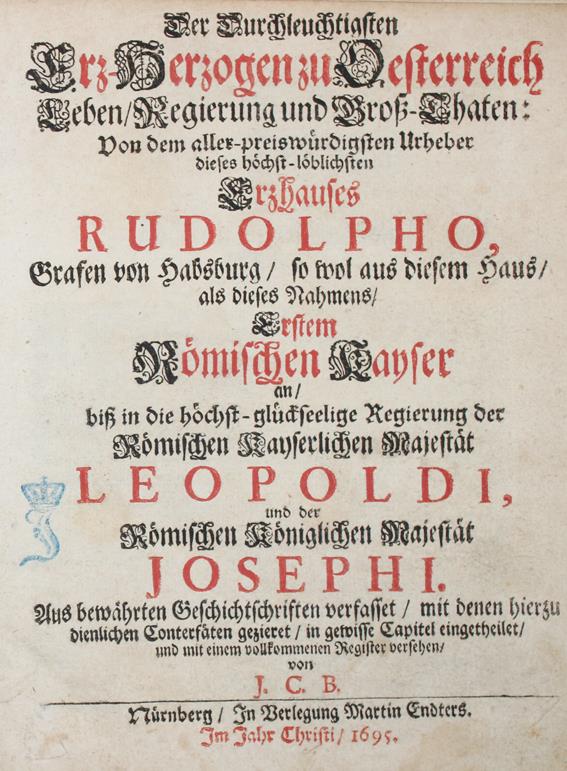 Der Durchleuchtigsten
Erz-Herzogen zu Oesterreich
Leben/ Regierung und Groß-Thaten:
Von dem aller-preiswürdigsten Urheber
dieses höchst-löblichsten
Erzhauses
RUDOLPHO,
Grafen von Habsburg/ so wol aus diesem Haus/
als dieses Nahmens/
Erstem
Römischen Kayser
an/
biß in die höchst-glückseelige Regierung der
Römischen Kayserlichen Majestät
LEOPOLDI,
und der
Römischen Königlichen Majestät
JOSEPHI.
Aus bewährten Geschichtschriften verfasset/ mit denen hierzu
dienlichen Conterfäten gezieret/ in gewisse Capitel eingetheilet/
und mit einem vollkommenen Register versehen/
von
J. C. B.
Nürnberg/ In Verlegung Martin Endters.
Im Jahr Christi/ 1695.